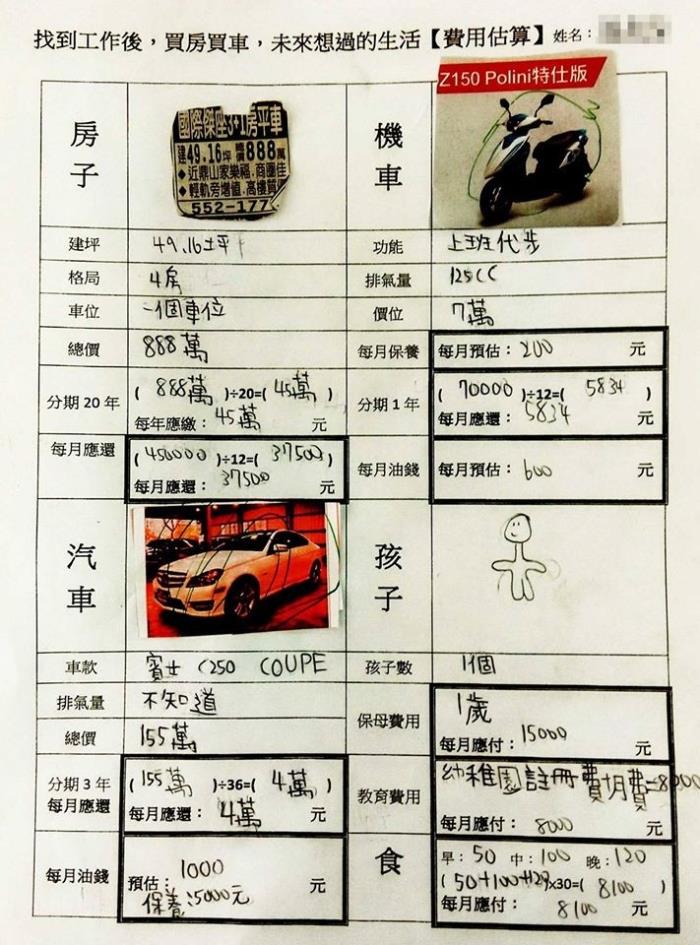 找到工作後，買房買車，未來想過的生活【費用估算】姓名：
房子
國際傑座3+1房平車
建49.16坪 售價888萬
◆近鼎山家樂福.商圈佳
◆輕軌旁增值.高樓質
552-177
建坪
49.16坪
格局
4房
車位
一個車位
總價
888萬
分期 20 年
( 888萬 )÷20=( 45萬 )
每年應繳：45萬 元
每月應還
( 450000 )÷12=( 37500 )
每月應還：37500 元
機車
Z150 Polini特仕版
功能
上班代步
排氣量
125CC
價位
7萬
每月保養
每月預估：200 元
分期 1 年
( 70000 )÷12=( 5834 )
每月應還：5834 元
每月油錢
每月預估：600 元
汽車
車款
賓士 C250 COUPE
排氣量
不知道
總價
155萬
分期 3 年
每月應還
( 155萬 )÷36=( 4萬 )
每月應還：4萬 元
每月油錢
預估：1000 元
保養：5000元
孩子
孩子數
1個
保母費用
1歲
每月應付：15000
教育費用
幼稚園註冊費+月費=8000
每月應付：8000 元
食
早：50 中：100 晚：120
( 50+100+120 )x30=( 8100 )
每月應付：8100 元